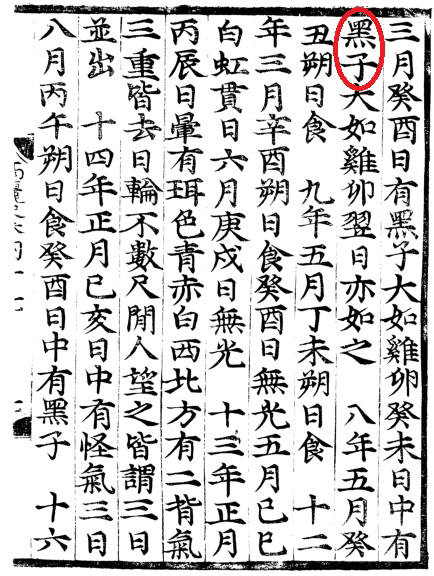 三月癸酉日有黑子大如雞卵癸未日中有
黑子大如雞卵翌日亦如之　八年五月癸
丑朔日食　九年五月丁未朔日食　十二
年三月辛酉朔日食癸酉日無光五月己巳
白虹貫日六月庚戌日無光　十三年正月
丙辰日暈有珥色青赤白西北方有二背氣
三重皆去日輪不數尺閒人望之皆謂三日
並出　十四年正月己亥日中有怪氣三日
八月丙午朔日食癸酉日中有黑子　十六